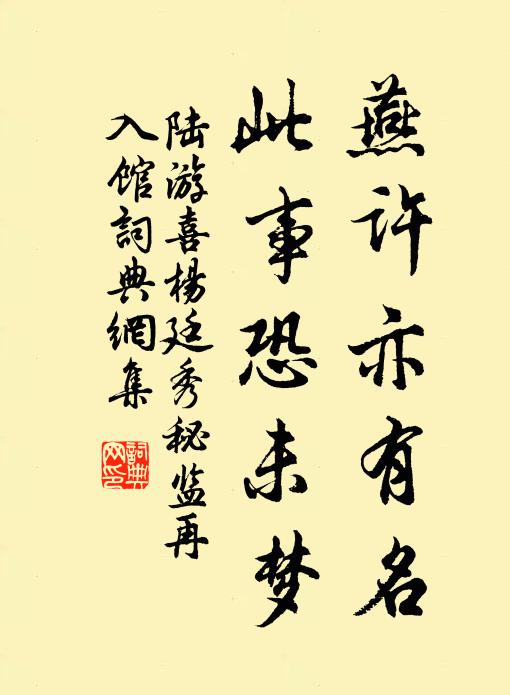 燕许亦有名
此事恐未梦
陆游喜楊廷秀秘监再
入馆詞典網集
詞典
网印